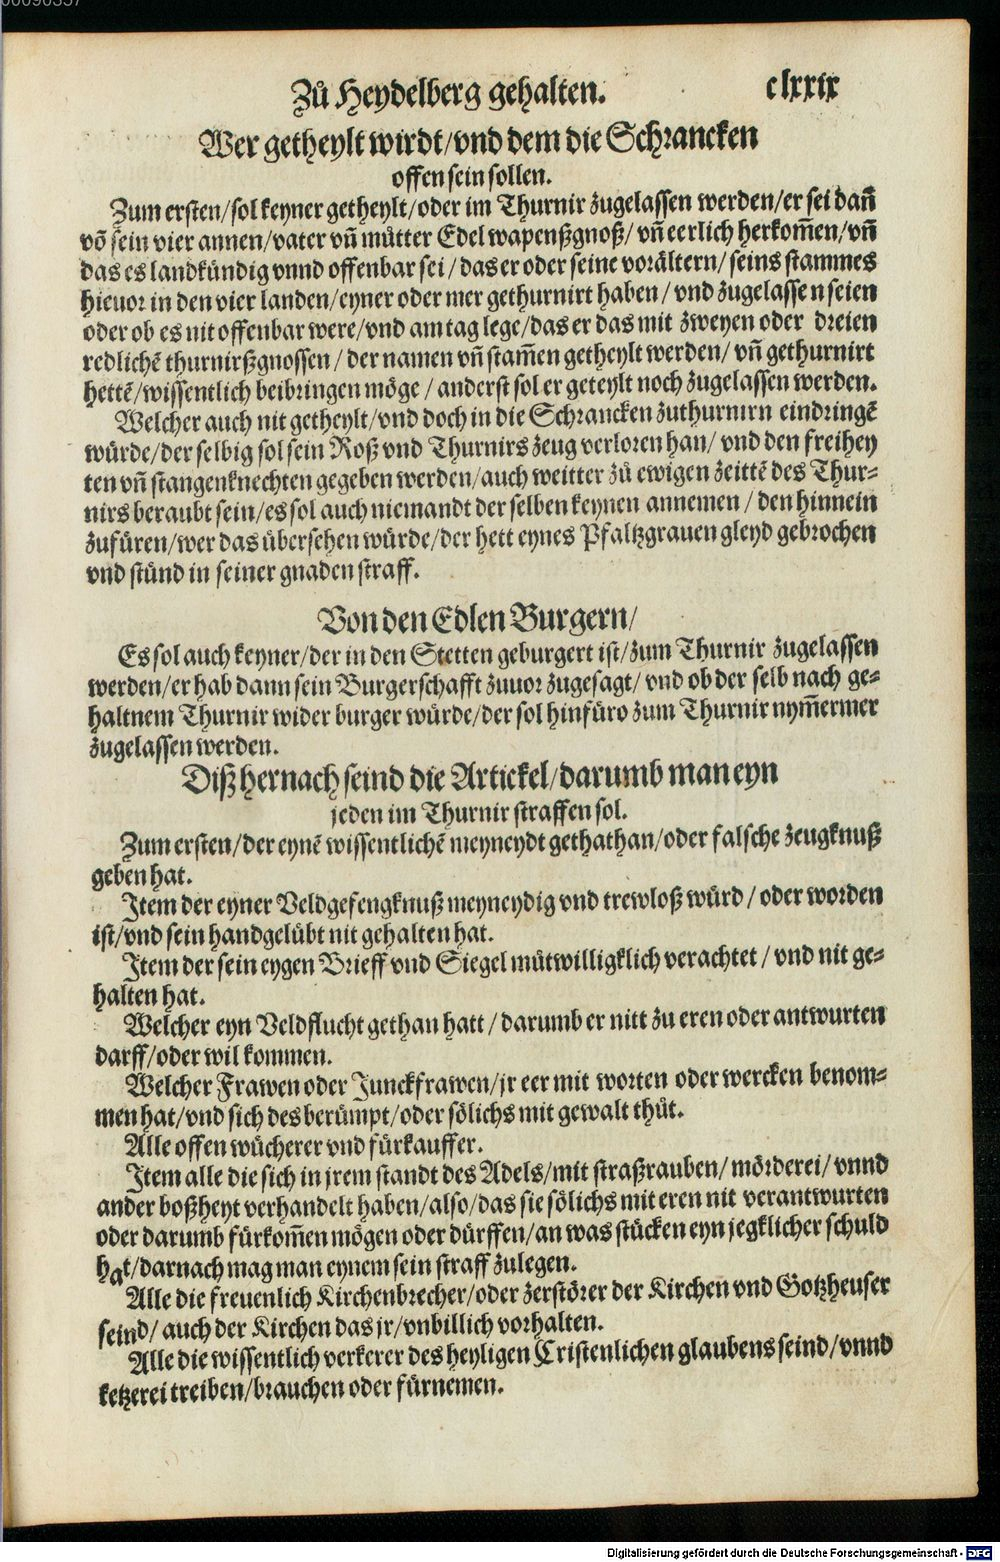 00090357
Zů Heydelberg gehalten. clxxix
Wer getheylt wirdt/vnd dem die Schrancken
offen sein sollen.
Zum ersten/sol keyner getheylt/oder im Thurnir zugelassen werden/er sei dañ
võ sein vier annen/vater vñ můtter Edel wapenßgnoß/vñ eerlich herkom̃en/vñ
das es landkündig vnnd offenbar sei/das er oder seine vorältern/seins stammes
hieuor in den vier landen/eyner oder mer gethurnirt haben/vnd zugelassen seien
oder ob es nit offenbar were/vnd am tag lege/das er das mit zweyen oder dreien
redlichẽ thurnirßgnossen/der namen vñ stam̃en getheylt werden/vñ gethurnirt
hettẽ/wissentlich beibringen möge/anderst sol er geteylt noch zugelassen werden.
Welcher auch nit getheylt/vnd doch in die Schrancken zuthurnirn eindringẽ
würde/der selbig sol sein Roß vnd Thurnirs zeug verloren han/vnd den freihey
ten vñ stangenknechten gegeben werden/auch weitter zů ewigen zeittẽ des Thur-
nirs beraubt sein/es sol auch niemandt der selben keynen annemen/den hinnein
zufüren/wer das übersehen würde/der hett eynes Pfaltzgrauen gleyd gebrochen
vnd stünd in seiner gnaden straff.
Von den Edlen Burgern/
Es sol auch keyner/der in den Stetten geburgert ist/zum Thurnir zugelassen
werden/er hab dann sein Burgerschafft zuuor zugesagt/vnd ob der selb nach ge-
haltnem Thurnir wider burger würde/der sol hinfüro zum Thurnir nym̃ermer
zugelassen werden.
Diß hernach seind die Artickel/darumb man eyn
jeden im Thurnir straffen sol.
Zum ersten/der eynẽ wissentlichẽ meyneydt gethathan/oder falsche zeugknuß
geben hat.
Item der eyner Veldgefengknuß meyneydig vnd trewloß würd/oder worden
ist/vnd sein handgelübt nit gehalten hat.
Item der sein eygen Brieff vnd Siegel můtwilligklich verachtet/vnd nit ge-
halten hat.
Welcher eyn Veldflucht gethan hatt/darumb er nitt zu eren oder antwurten
darff/oder wil kommen.
Welcher Frawen oder Junckfrawen/jr eer mit worten oder wercken benom-
men hat/vnd sich des berümpt/oder sölichs mit gewalt thüt.
Alle offen wücherer vnd fürkauffer.
Item alle die sich in jrem standt des Adels/mit straßrauben/mörderei/vnnd
ander boßheyt verhandelt haben/also/das sie sölichs mit eren nit verantwurten
oder darumb fürkom̃en mögen oder dürffen/an was stücken eyn jegklicher schuld
hat/darnach mag man eynem sein straff zulegen.
Alle die freuenlich Kirchenbrecher/oder zerstörer der Kirchen vnd Gotzheuser
seind/auch der Kirchen das jr/vnbillich vorhalten.
Alle die wissentlich verkerer des heyligen Cristenlichen glaubens seind/vnnd
ketzerei treiben/brauchen oder fürnemen.
Digitalisierung gefördert durch die Deutsche Forschungsgemeinschaft - DFG